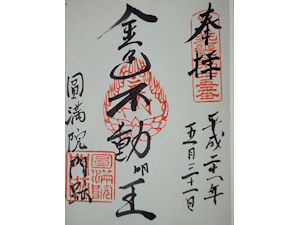 奉拝
平成二十一年
五月三十一日
金色不動明王
圓満院門跡
圓満院